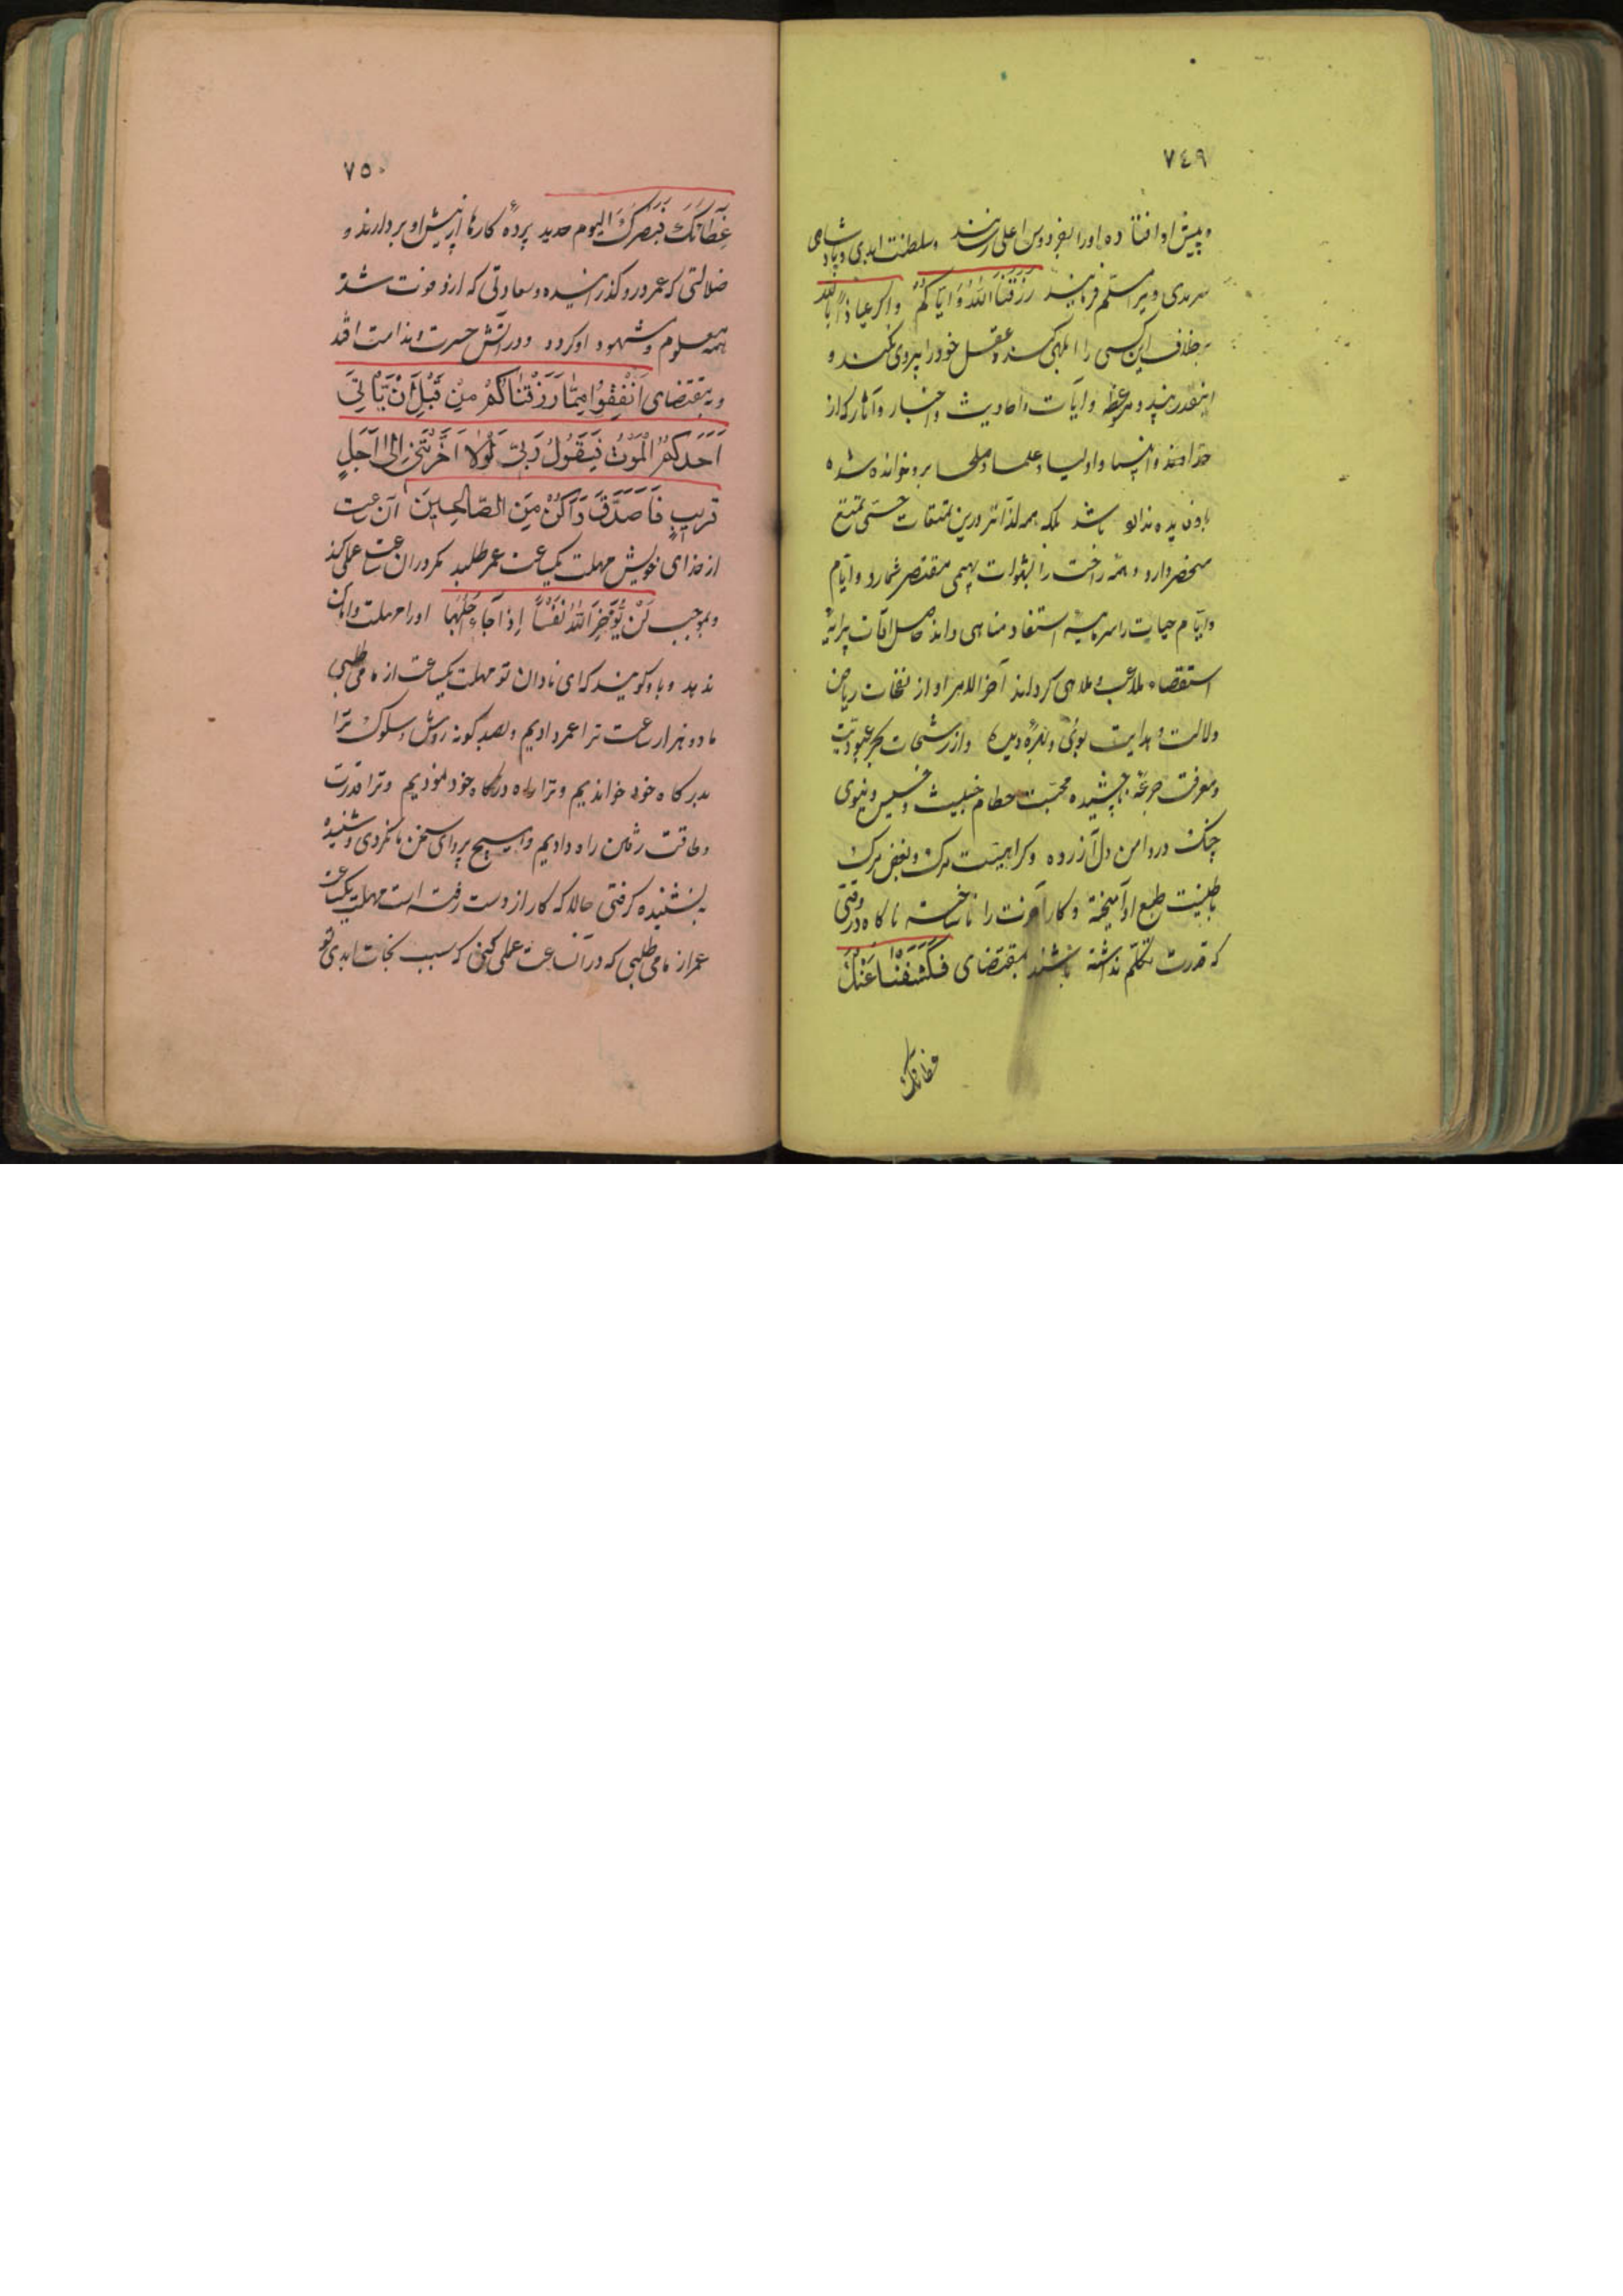 ٧٤٩
و پیش او افتاده او را بفردوس اعلی رسانند و سلطنت ابدی و پادشاهی
سرمدی ویرا مسلم فرمایند رَزَقَنَا اللهُ وَ اِیّاکُم و اگر عیاذاً بالله
بر خلاف این کسی را ابلهی کند و عقل خود را پیروی نکند و
اینقدر پند و موعظه و آیات و احادیث و اخبار و آثار که از
خداوند و انبیا و اولیا و علما و صلحا برو خوانده شده
باشد بلکه همه لذاتر درین تمتعات حسّی
منحصر دارد و همه راحت را بشهوات بهیمی مقتصر شمارد و ایام
و ایام حیات را سرمایه استفاد مناهی داند حاصل اوقات پیرایه
استقصاء ملاعب و ملاهی گرداند آخر الامر او از نفحات ریاض
ولالت و هدایت بوئی و از رشحات بحر عبودیت
و معرفت جرعه نچشیده محبت حطام خبیث و خسیس دنیوی
چنگ در دامن دل او زده و کراهیت مرگ و بغض مرگ
با طینت طبع او آمیخته و کار آخرت را ناساخته ناگاه در وقتی
که قدرت تکلم نداشته باشد بمقتضای فَکَشَفْنَا عَنْکَ
غطاءک
٧٥٠
غِطَائَکَ فَبَصَرُکَ الیوم حدید پردهٔ کارها از پیش او بردارند و
ضلالتی که عمر درو گذرانیده و سعادتی که ازو فوت شده
همه معلوم و مشهود او گردد و در آتش حسرت و ندامت افتد
و بمقتضای اَنْفِقُوا مِمّا رَزَقْنَاکُمْ مِنْ قَبْلِ اَنْ یَأْتِیَ
اَحَدَکُمُ الْمَوْتُ فَیَقُولُ رَبِّ لَوْلَا اَخَّرْتَنِی اِلَی اَجَلٍ
قَرِیبٍ فَاَصَّدَّقَ وَ اَکُنْ مِنَ الصَّالِحِینَ آن ساعت
از خدای خویش مهلت یکساعت عمر طلبد مگر در آن ساعت عملی کند
و بموجب لَنْ یُؤَخِّرَ اللهُ نَفْسًا اِذَا جَاءَ اَجَلُهَا او را مهلت و امان
ندهد و باو گویند که ای نادان تو مهلت یکساعت از ما می طلبی
ما دو هزار ساعت ترا عمر دادیم و بصد گونه روش و سلوک ترا
بدرگاه خود خواندیم و ترا راه درگاه خود نمودیم و ترا قدرت
و طاقت رفتن راه دادیم و هیچ پروای سخن ما نکردی و شنیده
نشنیده گرفتی حالا که کار از دست رفته است مهلت یکساعت
عمر از ما می طلبی که در آنساعت عملی کنی که سبب نجات ابدی تو